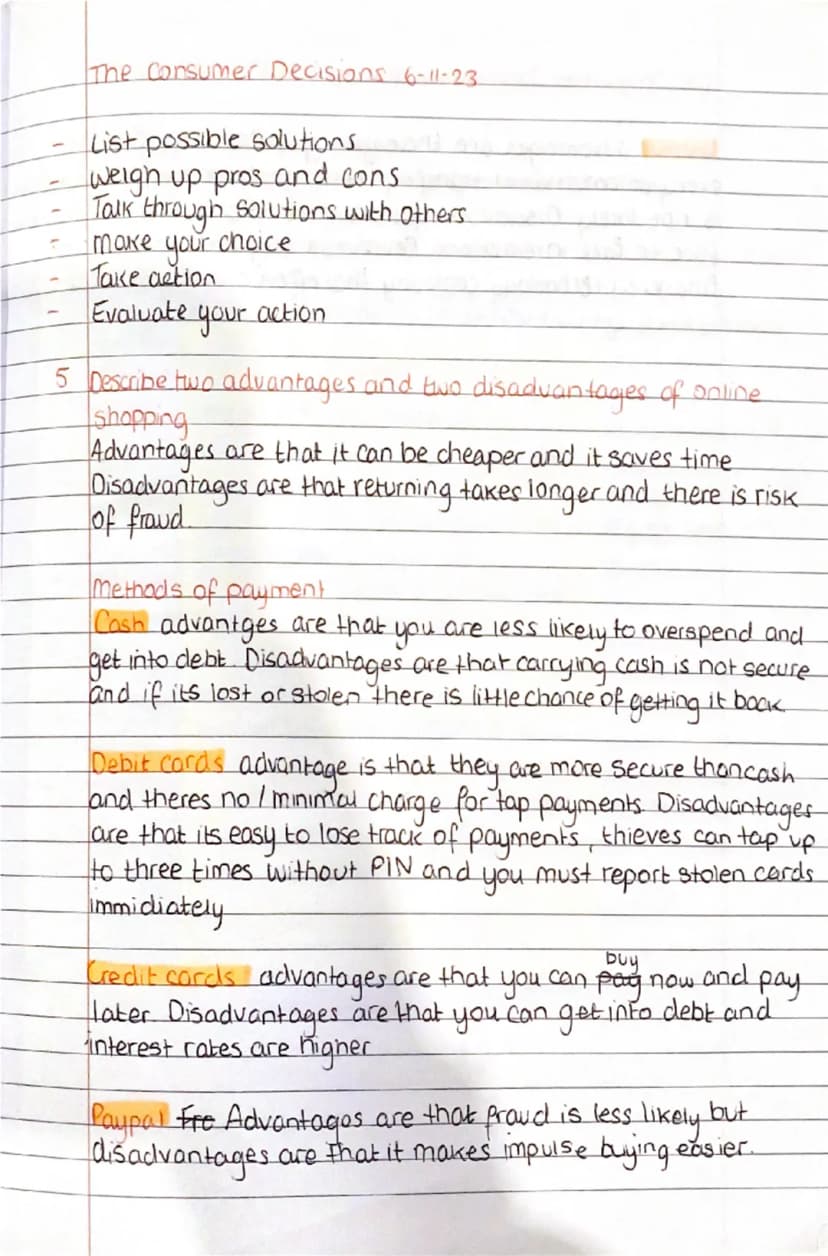 The Consumer Decisions 6-11-23
- List possible solutions
- Weigh up pros and cons
- Talk through solutions with others
- make your choice
- Take action
- Evaluate your action
5 Describe two advantages and two disadvantages of online
shopping
Advantages are that it can be cheaper and it saves time
Disadvantages are that returning takes longer and there is risk
of fraud
Methods of payment
Cash advantges are that you are less likely to overspend and
get into debt. Disadvantages are that carrying cash is not secure
and if its lost or stolen there is little chance of getting it back
Debit cards advantage is that they are more secure than cash
and theres no / minimal charge for tap payments. Disadvantages
are that its easy to lose track of payments, thieves can tap up
to three times without PIN and you must report stolen cards
immidiately
Credit cards advantages are that you can pay buy now and pay
later. Disadvantages are that you can get into debt and
interest rates are higher
Paypal Fre Advantages are that fraud is less likely but
disadvantages are that it makes impulse buying easier.